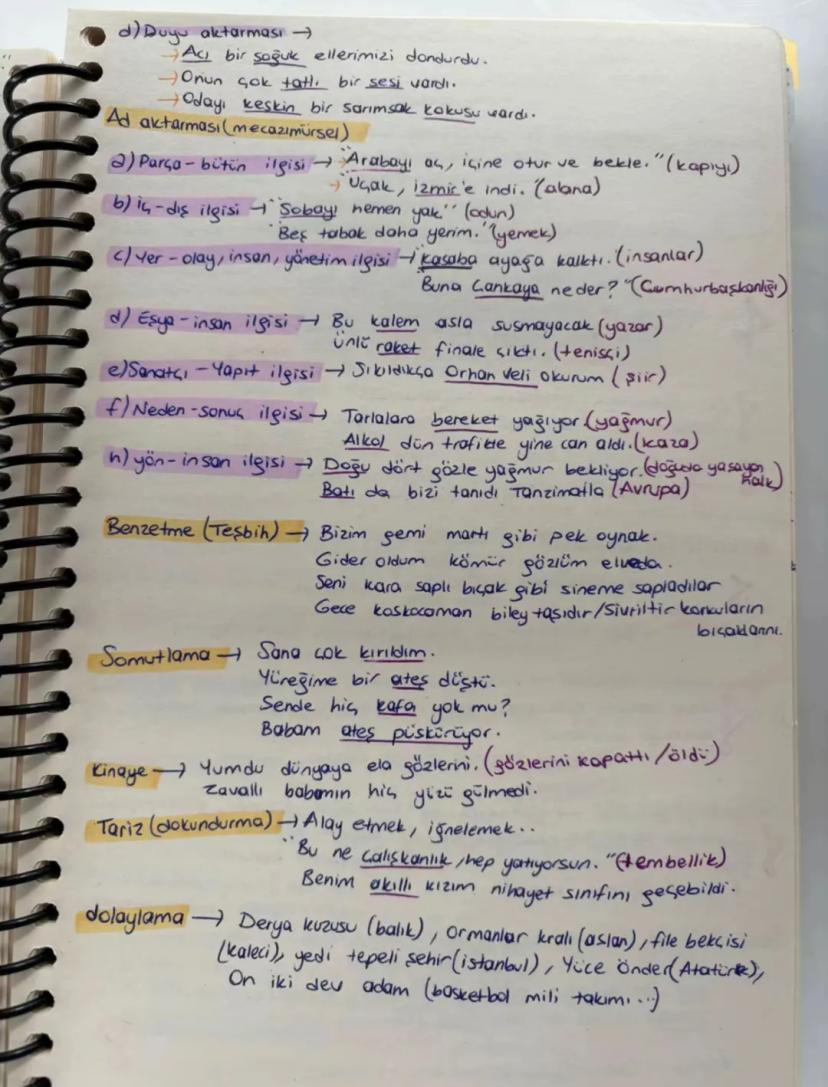 d) Duyu aktarması →
→ Acı bir soğuk ellerimizi dondurdu.
→ Onun çok tatlı bir sesi vardı.
→ Odayı keskin bir sarımsak kokusu vardı.
Ad aktarması (mecazımürsel)
a) Parça-bütün ilgisi → "Arabayı aç, içine otur ve bekle." (kapıyı)
→ Uçak, İzmir'e indi. "(alana)
b) iç-dış ilgisi → "Sobayı hemen yak" (odun)
"Beş tabak daha yerim." (yemek)
c) Yer-olay, insan, yönetim ilgisi → "Kasaba ayağa kalktı. (insanlar)
"Buna Çankaya ne der?" (Cumhurbaşkanlığı)
d) Eşya-insan ilgisi → Bu kalem asla susmayacak (yazar)
ünlü raket finale çıktı. (tenisçi)
e) Sanatçı-Yapıt ilgisi → Sıkıldıkça Orhan Veli okurum (şiir)
f) Neden-sonuç ilgisi → Tarlalara bereket yağıyor (yağmur)
Alkol dün trafikte yine can aldı. (kaza)
h) yön-insan ilgisi → Doğu dört gözle yağmur bekliyor. (doğuda yaşayan halk)
Batı da bizi tanıdı Tanzimatla (Avrupa)
Benzetme (Teşbih) → Bizim gemi martı gibi pek oynak.
Gider oldum kömür gözlüm elveda.
Seni kara saplı bıçak gibi sineme sapladılar
Gece koskocaman biley taşıdır/Sivriltir korkuların
bıçaklarını.
Somutlama → Sana çok kırıldım.
Yüreğime bir ateş düştü.
Sende hiç kafa yok mu?
Babam ateş püskürüyor.
Kinaye → Yumdu dünyaya ela gözlerini. (gözlerini kapattı / öldü)
Zavallı babamın hiç yüzü gülmedi.
Tariz (dokundurma) → Alay etmek, iğnelemek..
"Bu ne çalışkanlık, hep yatıyorsun." (tembellik)
Benim akıllı kızım nihayet sınıfını geçebildi.
dolaylama → Derya kuzusu (balık), Ormanlar kralı (aslan), file bekçisi
(kaleci), yedi tepeli şehir (istanbul), Yüce Önder (Atatürk),
On iki dev adam (basketbol mili takımı...)